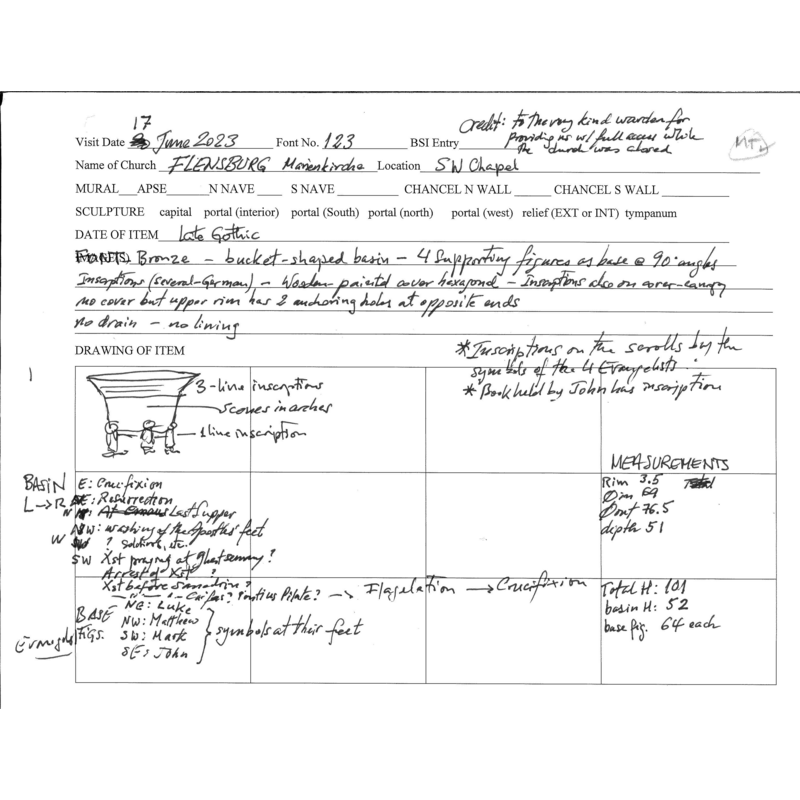 17
Visit Date June 2023 Font No. 123 BSI Entry
Credit: to the very kind warden for
providing us w/ full access while
the church was closed
Name of Church FLENSBURG Marienkirche Location SW Chapel
MURAL APSE N NAVE S NAVE CHANCEL N WALL CHANCEL S WALL
SCULPTURE capital portal (interior) portal (South) portal (north) portal (west) relief (EXT or INT) tympanum
DATE OF ITEM Late Gothic
Bronze - bucket-shaped basin - 4 supporting figures as base @ 90° angles
Inscriptions (several-German) - Wooden painted cover hexagonal - Inscriptions also on cover-canopy
no cover but upper rim has 2 anchoring holes at opposite ends
no drain - no lining
DRAWING OF ITEM
* Inscriptions on the scrolls by the
symbols of the 4 Evangelists.
* Book held by John has inscription
3-line inscriptions
scenes in arches
1 line inscription
MEASUREMENTS
Rim 3.5
Øim 69
Øout 76.5
depth 51
BASIN E: Crucifixion
L→R SE: Resurrection
Last Supper
NW: washing of the Apostles' feet
W ? soldiers, etc.
SW Xst praying at Ghetsemany?
Arrest of Xst ?
Xst before Sanhedrin?
" " Caifas? Pontius Pilate? → Flagelation → Crucifixion
Total H: 101
basin H: 52
base fig. 64 each
BASE FIGS.
NE: Luke
NW: Matthew
SW: Mark
SE: John
symbols at their feet